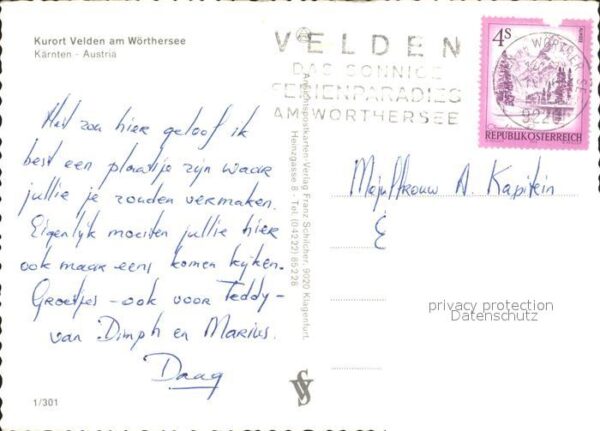 Kurort Velden am Wörthersee
Kärnten - Austria
Het zou hier geloof ik
best een plaatsje zijn waar
jullie je zouden vermaken.
Eigenlijk moesten jullie hier
ook maar eens komen kijken.
Groetjes - ook voor Teddy -
van Dimph en Marius.
Daag
1/301
Ansichtspostkarten-Verlag Franz Schilcher, 9020 Klagenfurt,
Heinzgasse 8 - Tel. (04222) 85228
VELDEN
DAS SONNIGE
FERIENPARADIES
AM WÖRTHERSEE
4S
REPUBLIK ÖSTERREICH
AM WÖRTHER SEE
922
Mejuffrouw A. Kapitein
E
privacy protection
Datenschutz